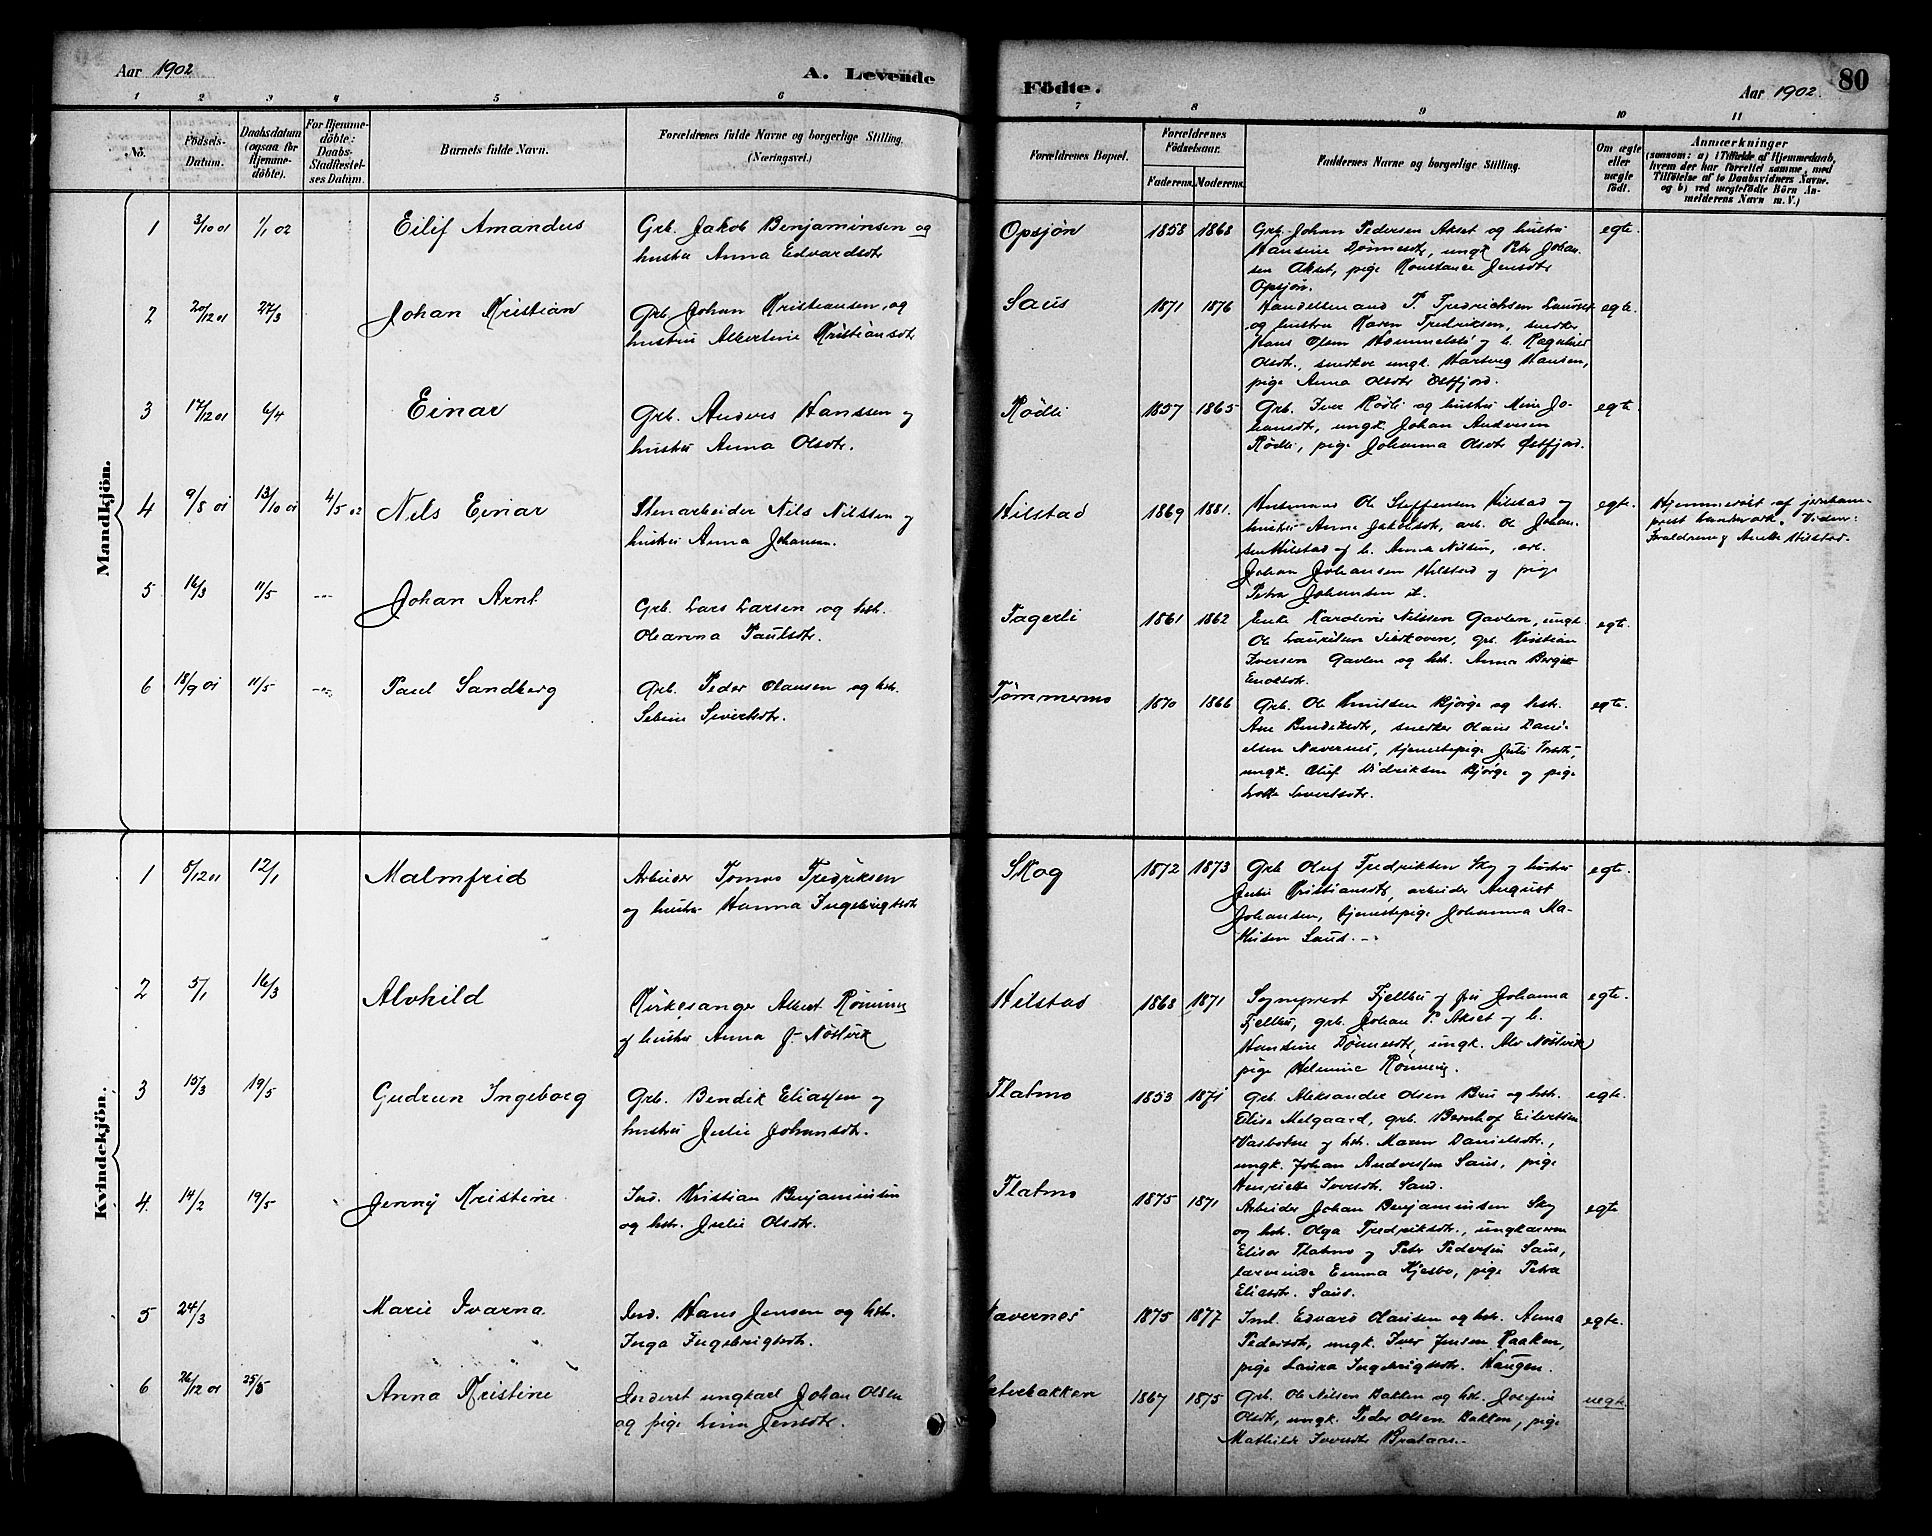 Aar 1902
A. Levende
Födte.
Aar 1902.
80
1 2 3 4 5 6
7 8 9 10 11
No.
Födsels-
Datum.
Daabsdatum
(ogsaa for
Hjemme-
döbte).
For Hjemme-
döbte:
Daabs-
Stadfæstel-
ses Datum.
Barnets fulde Navn.
Forældrenes fulde Navne og borgerlige Stilling.
(Næringsvei.)
Forældrenes Bopæl.
Forældrenes
Födselsaar.
Faderens. Moderens.
Faddernes Navne og borgerlige Stilling.
Om ægte
eller
uægte
födt.
Anmærkninger
(saasom: a) i Tilfælde af Hjemmedaab,
hvem der har forrettet samme, med
Tilföielse af to Daabsvidners Navne,
og b) ved uægtefödte Börn An-
melderens Navn m. V.)
Mandkjön.
1 3/10 01 1/1 02 Eilif Amandus
Grb. Jakob Benjaminsen og
hustru Anna Edvardsdtr
Opsjön 1858 1868
Grb. Johan Pedersen Akset og hustru
Hansine Dönnesdtr, ungk. Petr Johan-
sen Akset, pige Konstance Jensdtr
Opsjön.
egte.
2 20/12 01 27/3 Johan Kristian
Grb. Johan Kristiansen og
hustru Albertine Kristiansdtr
Saus 1871 1876
Handelsmand P. Fredriksen
og hustru Karen Fredriksen, smedker
Hans Olsen
Olsdtr., ungk. Hartvig Hansen,
pige Anna Olsdtr Östfjord.
egte.
3 17/12 01 6/4 Einar
Grb. Anders Hanssen og
hustru Anna Olsdtr.
Rödli 1857 1865
Grb. Iver Rödli og hustru Jo-
hansdtr, ungk. Johan Andersen
Rödli, pige Johanna Olsdtr Östfjord.
egte.
4 9/8 01 13/10 01 4/5 02 Nils Einar
Stenarbeider Nils Nilssen og
hustru Anna Johansen.
Hilstad 1869 1881.
Husmand Ole Steffensen Hilstad og
hustru Anna Jakobsdtr, arb. Ole Johan-
sen Hilstad og h. Anna Nilsen, arb.
Johan Johansen Hilstad og pige
Petra Johansen
egte.
Hjemmedöbt af
prest
Forældrene og Hilstad.
5 16/3 11/5 --- Johan Arnt
Grb. Lars Larsen og hstr.
Oleanna Paulsdtr.
Fagerli 1861 1862
Enke Karoline Nilssen Gavlen, ungk.
Ole Lauritsen, grb. Kristian
Iversen Gavlen og hstr. Anna Bergit
Enoksdtr.
egte.
6 18/9 01 11/5 --- Paul Sandberg
Grb. Peder Olausen og hstr.
Sebine Sivertsdtr.
Tömmermo 1870 1866
Grb. Ole Knutsen Björge og hstr.
Ane Bendiksdtr, smedker Olaus Dani-
elsen Navernes, tjenestepige Juli
ungk. Oluf Didriksen Björge og pige
Lotte Sivertsdtr.
egte.
Kvindekjön.
1 5/12 01 12/1 Malmfrid
Arbeider Tomas Fredriksen
og hustru Hanna Ingebrigtsdtr
Skog 1872 1873
Grb. Oluf Fredriksen Sky og hustru
Julie Kristiansdtr, arbeider August
Johansen, tjenestepige Johanna Ma-
thisen Saus.
egte.
2 5/1 16/3 Alvhild
Kirkesanger Albert Rönning
og hustru Anna J. Nöstvik
Hilstad 1868 1871
Sogneprest Fjellbu og fru Johanna
Fjellbu, grb. Johan P. Akset og h.
Hansine Dönnesdtr, ungk. Alv Nöstvik
pige Helmine Rönning.
egte.
3 15/3 19/5 Gudrun Ingeborg
Grb. Bendik Eliassen og
hustru Julie Johansdtr.
Flatmo 1853 1871
Grb. Aleksander Olsen Bru og hstr.
Elise Melgaard, grb. Bernhof Eilertsen
Vasbotne og hstr. Maren Danielsdtr.,
ungk. Johan Anderssen Saus, pige
Henriette Iversdtr. Saus.
egte.
4. 14/2 19/5 Jenny Kristine
Ind. Kristian Benjaminsen
og hstr. Julie Olsdtr.
Flatmo 1875 1871
Arbeider Johan Benjaminsen Sky
og hstr. Olga Fredriksdtr., ungkarene
Eliser Flatmo og Petr Pedersen Saus,
lærerinde Emma Hjesbo, pige Petra
Eliasdtr. Saus.
egte
5 24/3 Marie Ivarna
Ind. Hans Jensen og hstr.
Inga Ingebrigtsdtr.
Navernes 1875 1877
Ind. Edvard Olausen og hstr. Anna
Pedersdtr, ungk. Iver Jensen Raaken,
pige Laura Ingebrigtsdtr. Haugen.
egte.
6 26/12 01 25/5 Anna Kristine
Inderst ungkarl Johan Olsen
og pige Lina Jensdtr.
1867 1875
Grb. Ole Nilsen Bakken og hstr. Josefine
Olsdtr, ungk. Peder Olsen Bakken, pige
Mathilde Iversdtr Brataas.
uegte.